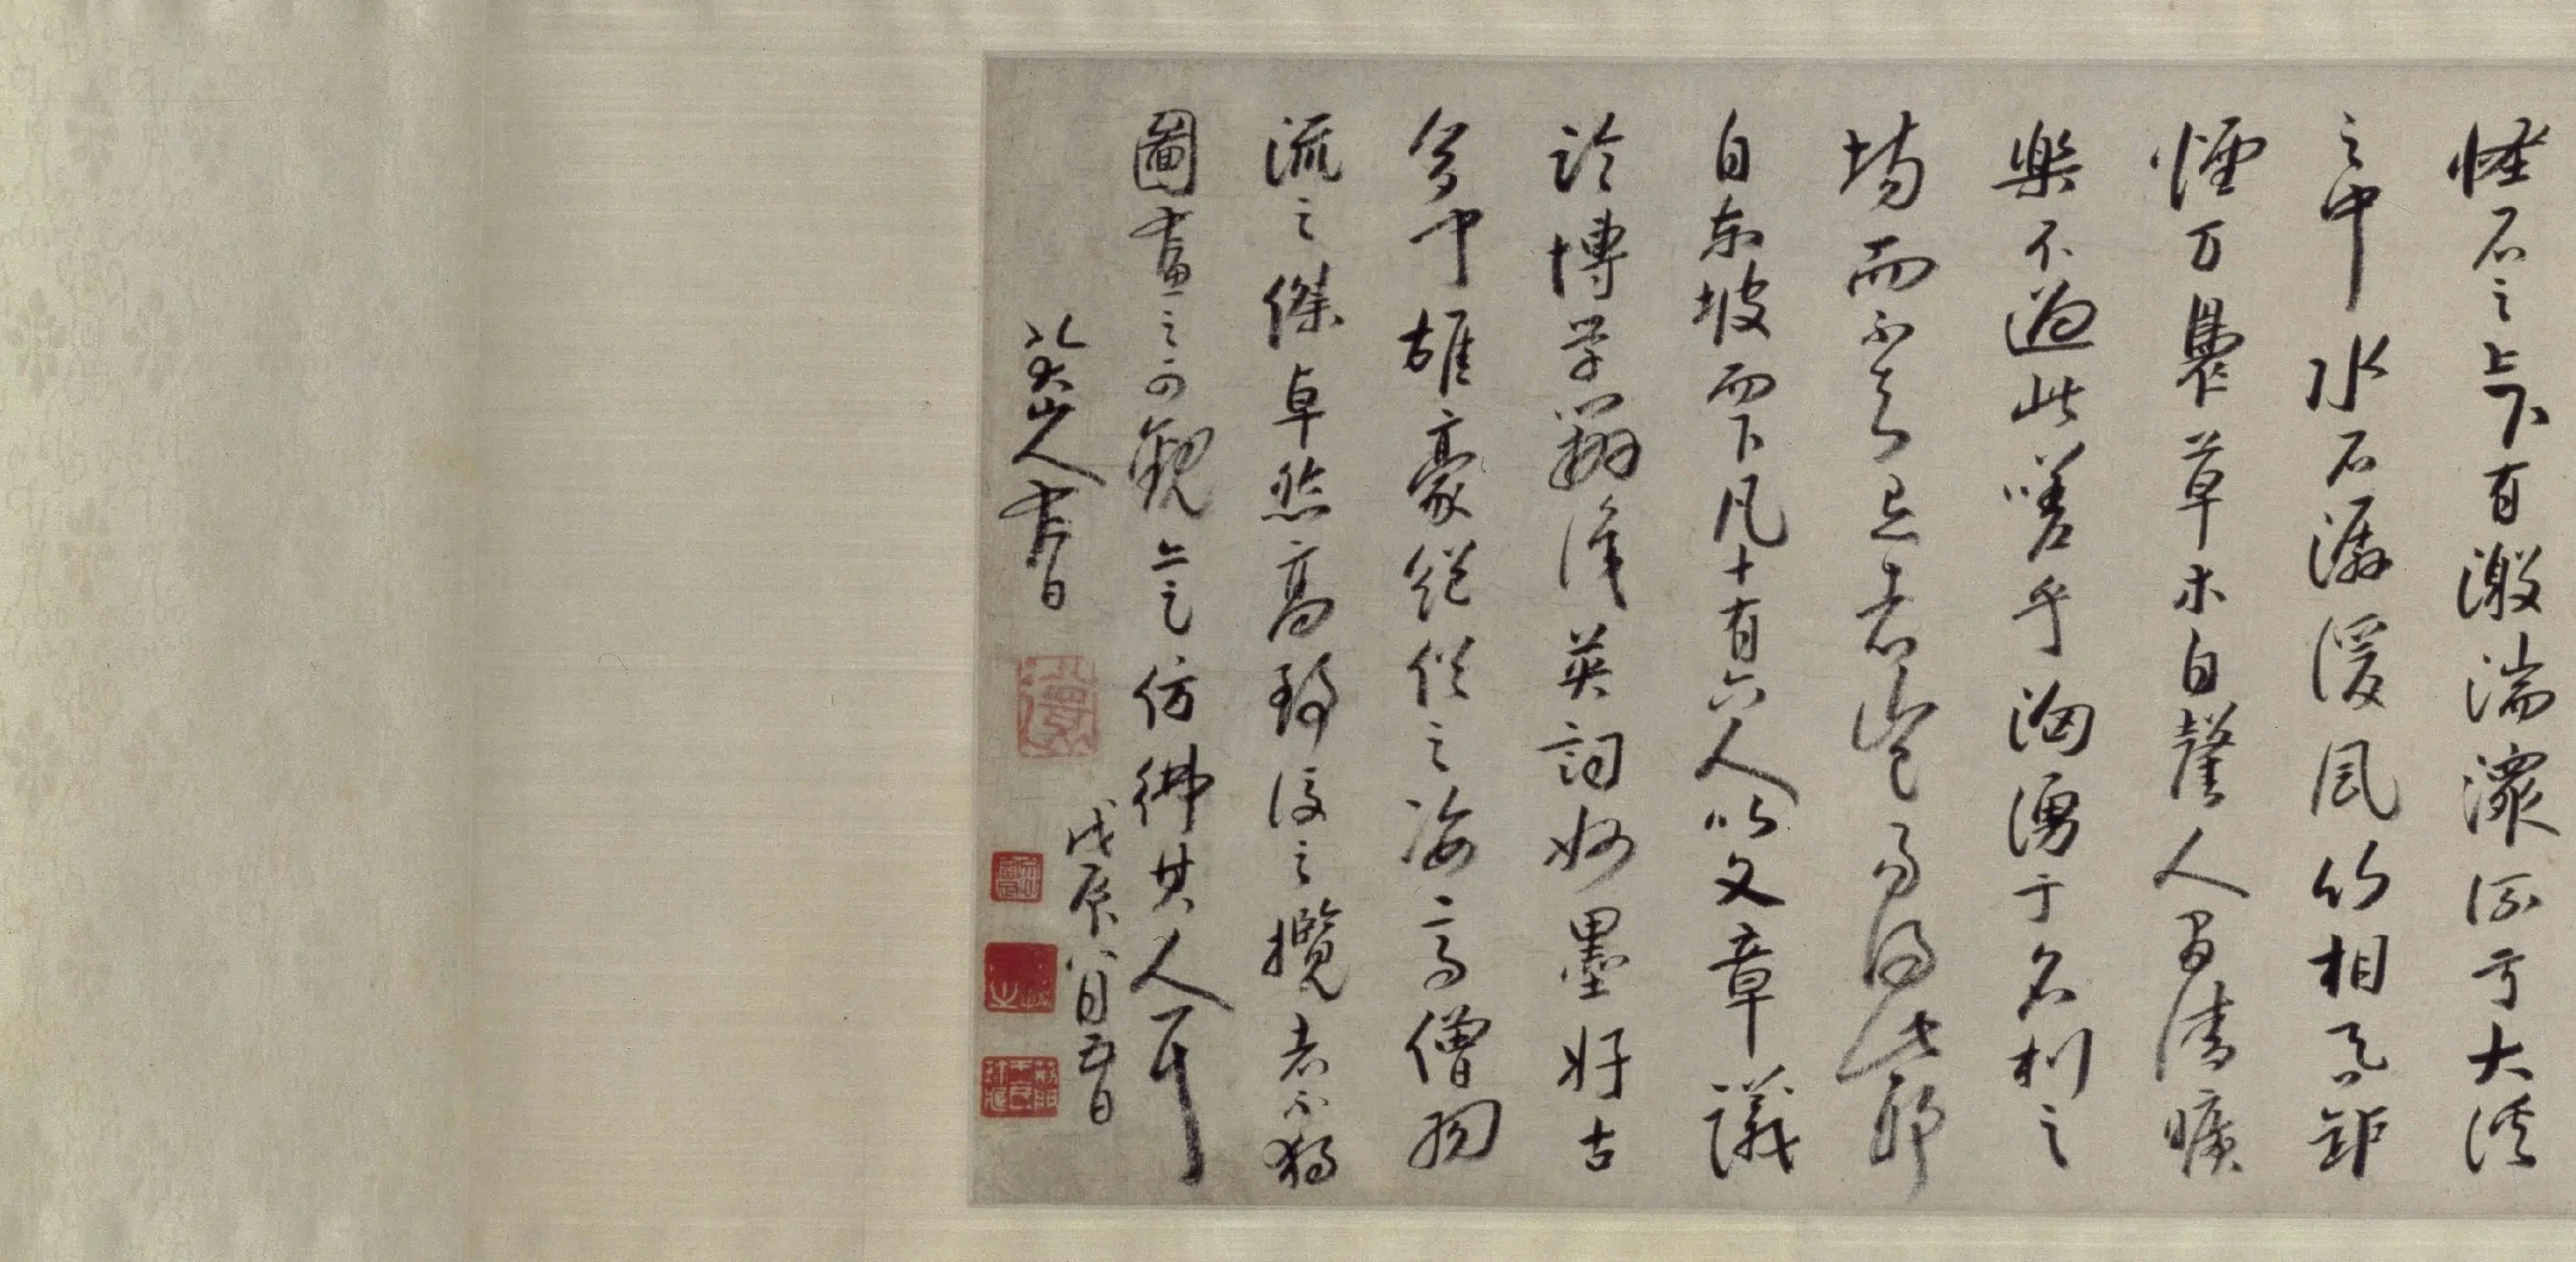 怪石之上下有激湍潨流于大溪
之中水石潺湲風竹相吞鑪
煙方裊草木自馨人間清曠
樂不過此嗟乎洶湧于名利之
場而不知退者豈易得此耶
自東坡而下凡十有六人以文章議
論博學辨識英詞妙墨好古
多聞雄豪絕俗之姿高僧羽
流之傑卓然高致後之攬者不獨
圖畫之可觀亦足仿彿其人耳
戊辰八月五日
八大山人書